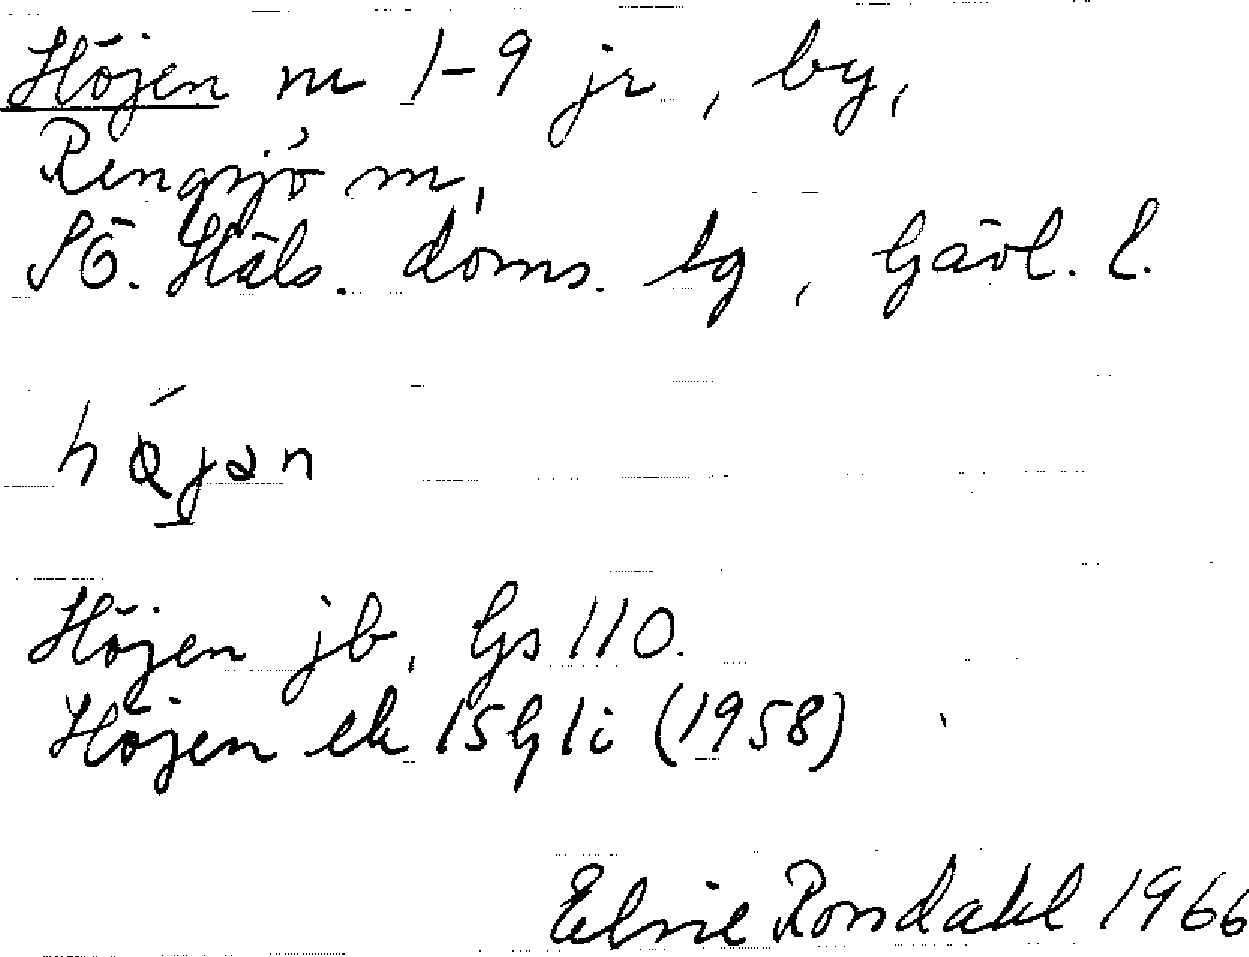 Höjen nr 1-9 jr, by,
Rengsjö sn,
SÖ. Häls. doms. tg, Gävl. l.
Höjen jb. Gs 110.
Höjen ek 15G1i (1958)
Elsie Rondahl 1966